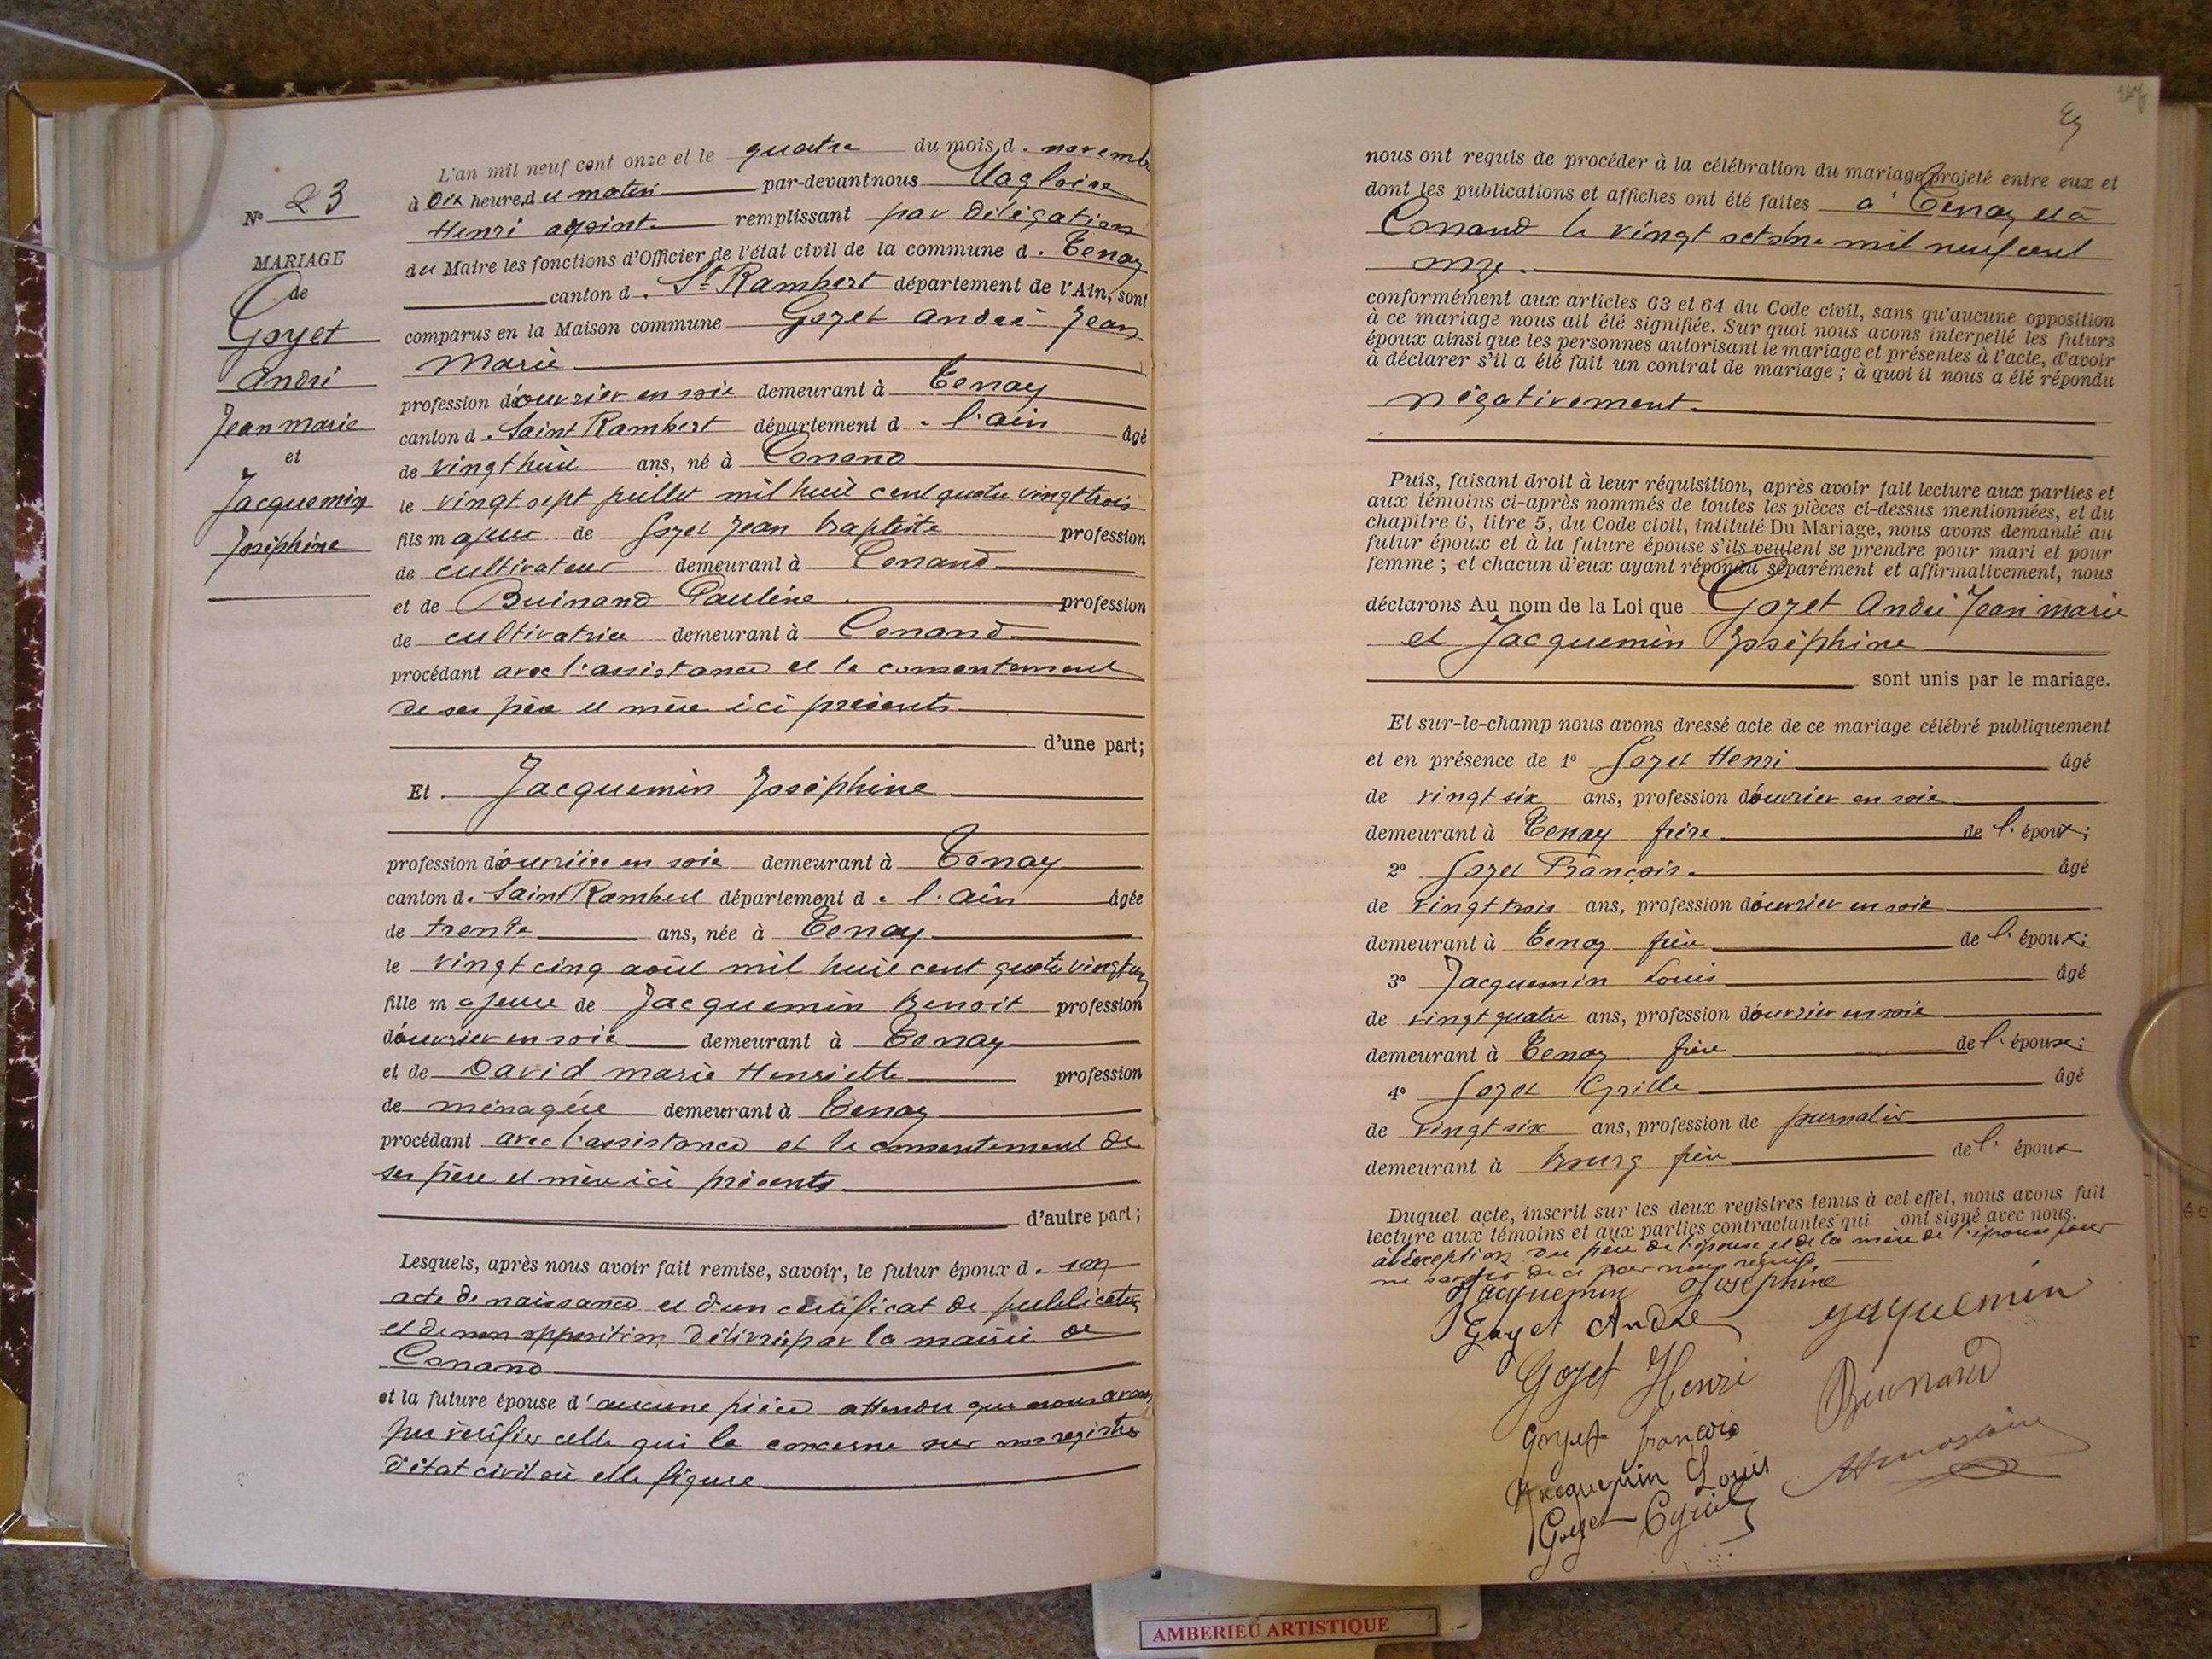 N° 23
MARIAGE
de
Goyet
André
Jean marie
et
Jacquemin
Joséphine
L'an mil neuf cent onze et le quatre du mois d. novembre
à Dix heures du matin par-devant nous Magloire
Henri adjoint remplissant par délégation
du Maire les fonctions d'Officier de l'état civil de la commune d. Tenay
canton d. St Rambert département de l'Ain, sont
comparus en la Maison commune Goyet André Jean
Marie
profession d'ouvrier en soie demeurant à Tenay
canton d. Saint Rambert département d. l'ain âgé
de vingt huit ans, né à Conand
le vingt sept juillet mil huit cent quatre vingt trois
fils majeur de Goyet Jean baptiste profession
de cultivateur demeurant à Conand
et de Buinand Pauline profession
de cultivatrice demeurant à Conand
procédant avec l'assistance et le consentement
de ses père et mère ici présents
d'une part;
Et Jacquemin Joséphine
profession d'ouvrière en soie demeurant à Tenay
canton d. Saint Rambert département d. l'ain âgée
de trente ans, née à Tenay
le vingt cinq août mil huit cent quatre vingt un
fille majeure de Jacquemin Benoit profession
d'ouvrier en soie demeurant à Tenay
et de David marie Henriette profession
de ménagère demeurant à Tenay
procédant avec l'assistance et le consentement de
ses père et mère ici présents
d'autre part;
Lesquels, après nous avoir fait remise, savoir, le futur époux d. son
acte de naissance et d'un certificat de publication
et de non opposition délivré par la mairie de
Conand
et la future épouse d'aucune pièce attendu que nous avons
pu vérifier celle qui la concerne sur nos registres
d'état civil où elle figure
nous ont requis de procéder à la célébration du mariage projeté entre eux et
dont les publications et affiches ont été faites à Tenay et à
Conand le vingt octobre mil neuf cent
onze.
conformément aux articles 63 et 64 du Code civil, sans qu'aucune opposition
à ce mariage nous ait été signifiée. Sur quoi nous avons interpellé les futurs
époux ainsi que les personnes autorisant le mariage et présentes à l'acte, d'avoir
à déclarer s'il a été fait un contrat de mariage; à quoi il nous a été répondu
négativement.
Puis, faisant droit à leur réquisition, après avoir fait lecture aux parties et
aux témoins ci-après nommés de toutes les pièces ci-dessus mentionnées, et du
chapitre 6, titre 5, du Code civil, intitulé Du Mariage, nous avons demandé au
futur époux et à la future épouse s'ils veulent se prendre pour mari et pour
femme; et chacun d'eux ayant répondu séparément et affirmativement, nous
déclarons Au nom de la Loi que Goyet André Jean marie
et Jacquemin Joséphine
sont unis par le mariage.
Et sur-le-champ nous avons dressé acte de ce mariage célébré publiquement
et en présence de 1° Goyet Henri âgé
de vingt six ans, profession d'ouvrier en soie
demeurant à Tenay frère de l'époux;
2° Goyet François. âgé
de vingt trois ans, profession d'ouvrier en soie
demeurant à Tenay frère de l'époux;
3° Jacquemin Louis âgé
de vingt quatre ans, profession d'ouvrier en soie
demeurant à Tenay frère de l'épouse;
4° Goyet Cyrille âgé
de vingt six ans, profession de journalier
demeurant à bourg frère de l'époux
Duquel acte, inscrit sur les deux registres tenus à cet effet, nous avons fait
lecture aux témoins et aux parties contractantes qui ont signé avec nous.
à l'exception du père de l'épouse et de la mère de l'épouse pour
ne savoir de ce par nous requis
Jacquemin Joséphine
Goyet André Jaquemin
Goyet Henri
Buinand
Goyet francois
Jacquemin Louis
Goyet Cyrille
AMBERIEU ARTISTIQUE